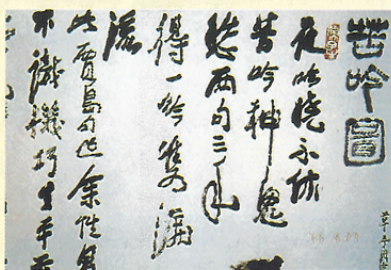 苦吟圖
夜吟曉不休
苦吟神鬼
愁两句三年
得一吟雙淚
流
此賈島句也余性
不識機巧生平